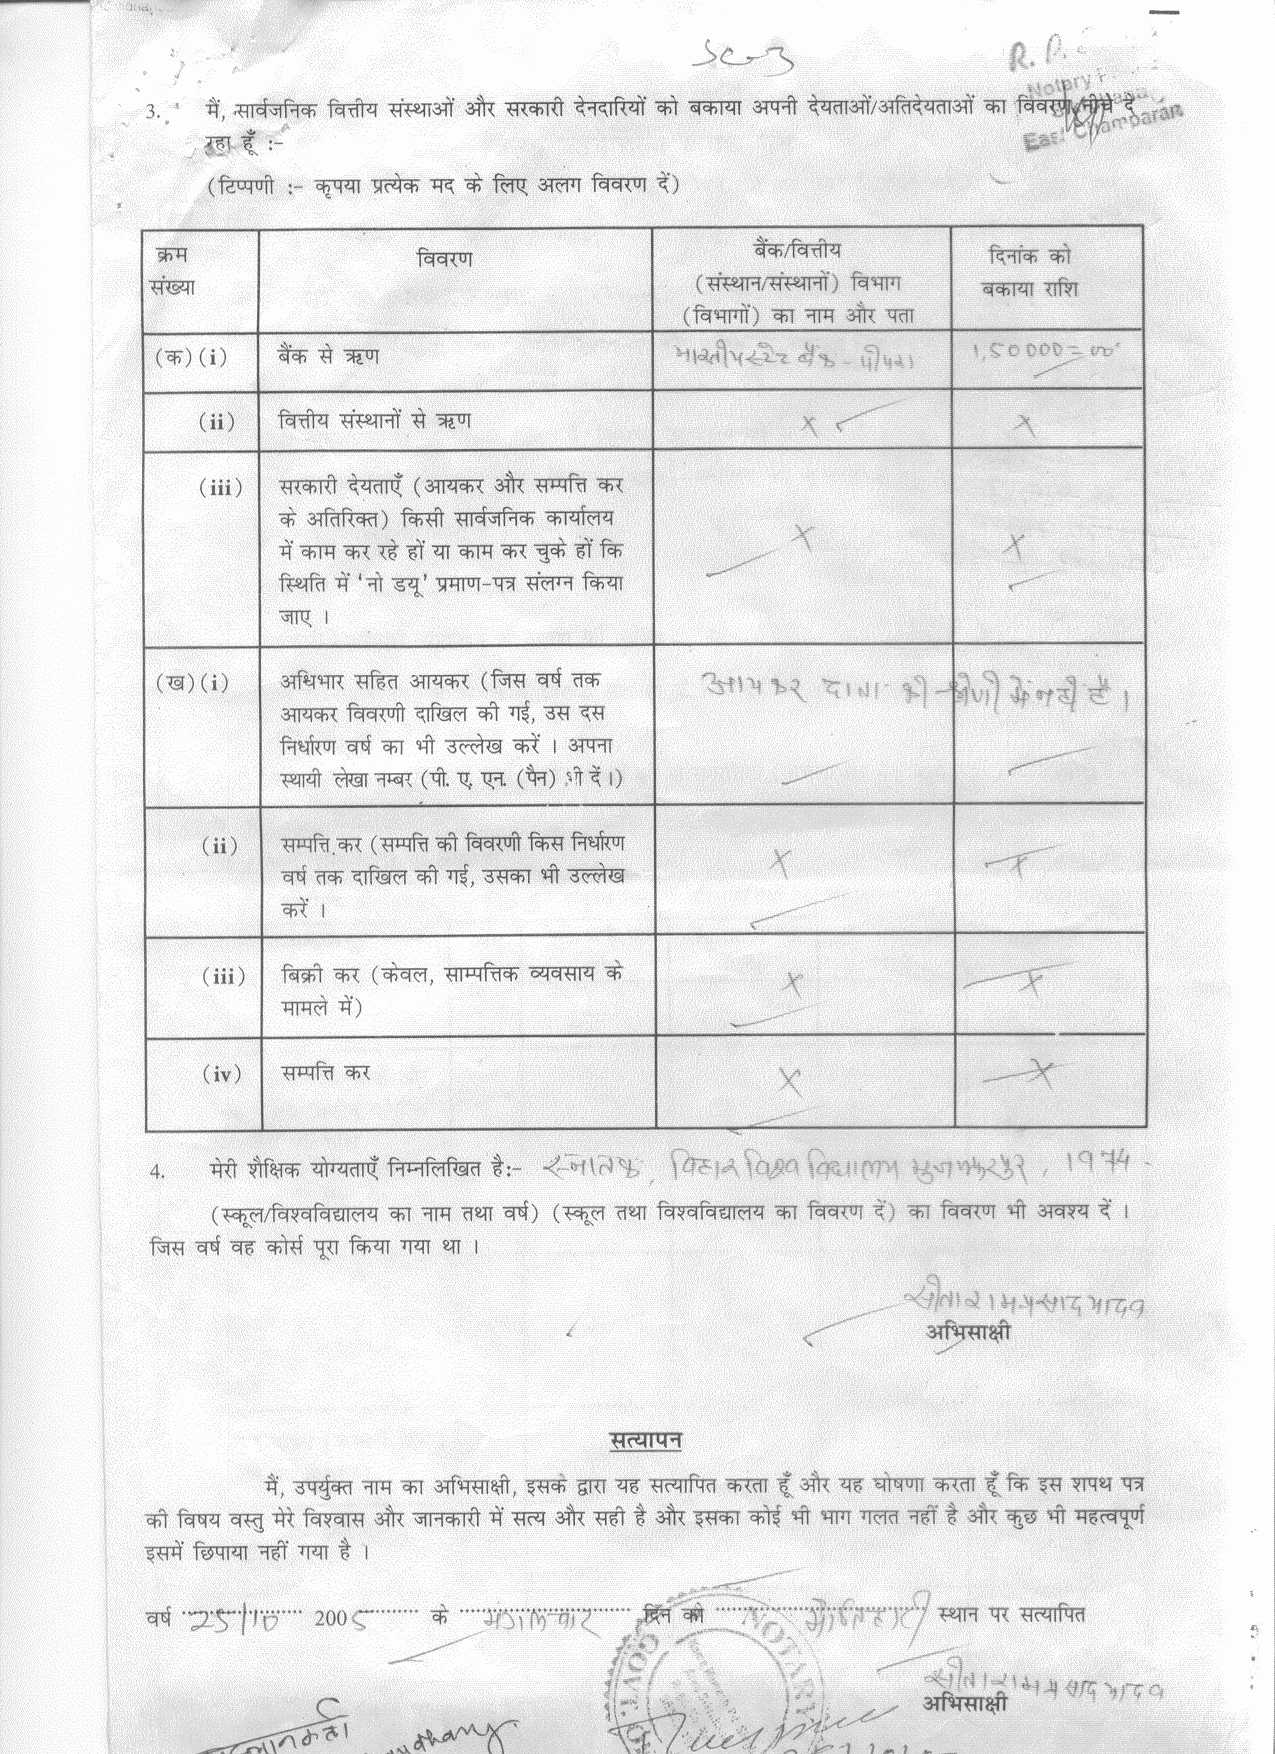 SC-3
R. P.
Notary
East Champaran
3. मैं, सार्वजनिक वित्तीय संस्थाओं और सरकारी देनदारियों को बकाया अपनी देयताओं/अतिदेयताओं का विवरण नीचे दे
रहा हूँ :-
(टिप्पणी :- कृपया प्रत्येक मद के लिए अलग विवरण दें)
क्रम
संख्या
विवरण
बैंक/वित्तीय
(संस्थान/संस्थानों) विभाग
(विभागों) का नाम और पता
दिनांक को
बकाया राशि
(क)(i) बैंक से ऋण भारतीय स्टेट बैंक - पीपरा 1,50000=00
(ii) वित्तीय संस्थानों से ऋण x x
(iii) सरकारी देयताएँ (आयकर और सम्पत्ति कर
के अतिरिक्त) किसी सार्वजनिक कार्यालय
में काम कर रहे हों या काम कर चुके हों कि x x
स्थिति में 'नो डयू' प्रमाण-पत्र संलग्न किया
जाए ।
(ख)(i) अधिभार सहित आयकर (जिस वर्ष तक आयकर दाता की श्रेणी में नहीं है ।
आयकर विवरणी दाखिल की गई, उस दस
निर्धारण वर्ष का भी उल्लेख करें । अपना
स्थायी लेखा नम्बर (पी. ए. एन. (पैन) भी दें।)
(ii) सम्पत्ति कर (सम्पत्ति की विवरणी किस निर्धारण x x
वर्ष तक दाखिल की गई, उसका भी उल्लेख
करें ।
(iii) बिक्री कर (केवल, साम्पत्तिक व्यवसाय के x x
मामले में)
(iv) सम्पत्ति कर x x
4. मेरी शैक्षिक योग्यताएँ निम्नलिखित है:- स्नातक, बिहार विश्व विद्यालय मुजफ्फरपुर, 1974
(स्कूल/विश्वविद्यालय का नाम तथा वर्ष) (स्कूल तथा विश्वविद्यालय का विवरण दें) का विवरण भी अवश्य दें ।
जिस वर्ष वह कोर्स पूरा किया गया था ।
सीताराम प्रसाद यादव
अभिसाक्षी
सत्यापन
मैं, उपर्युक्त नाम का अभिसाक्षी, इसके द्वारा यह सत्यापित करता हूँ और यह घोषणा करता हूँ कि इस शपथ पत्र
की विषय वस्तु मेरे विश्वास और जानकारी में सत्य और सही है और इसका कोई भी भाग गलत नहीं है और कुछ भी महत्वपूर्ण
इसमें छिपाया नहीं गया है ।
वर्ष 25/10 2005 के मंगलवार दिन को मोतिहारी स्थान पर सत्यापित
NOTARY
GOVT. OF
सीताराम प्रसाद यादव
अभिसाक्षी